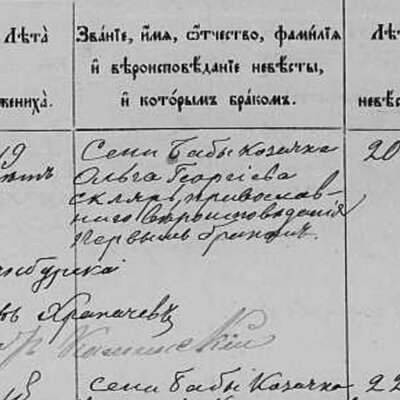 Лѣта̀
жениха̀.
Зва́нїе, и҆́мѧ, ѻ҆́тчество, фами́лїѧ
и҆ вѣроисповѣ́данїе невѣ́сты,
и҆ кото́рымъ бра́комъ.
Лѣ
невѣ́с
19
лѣтъ
Сени Бабы Казачка
Ольга Георгіева
Скляр, православ-
наго вѣроисповѣданія
первымъ бракомъ.
20
Храпачевъ
Каминскій
18
Сени Бабы Казачка
22